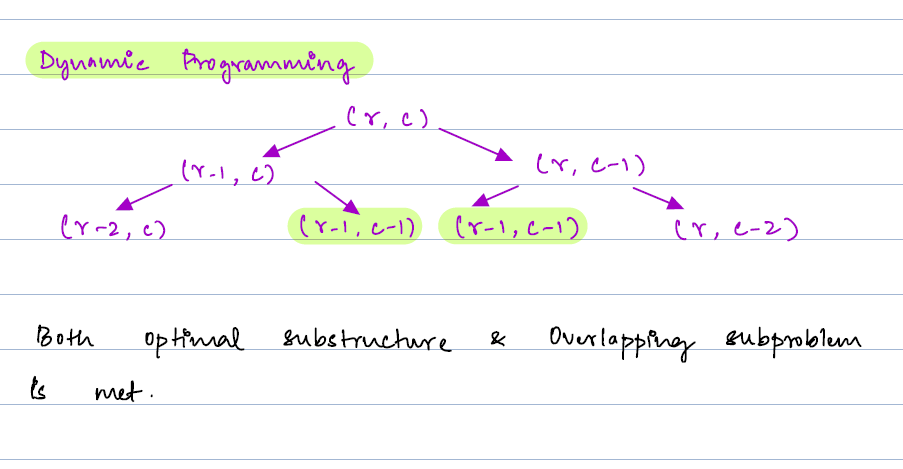 Dynamic Programming
(r, c)
(r-1, c) (r, c-1)
(r-2, c) (r-1, c-1) (r-1, c-1) (r, c-2)
Both optimal substructure & Overlapping subproblem
is met.